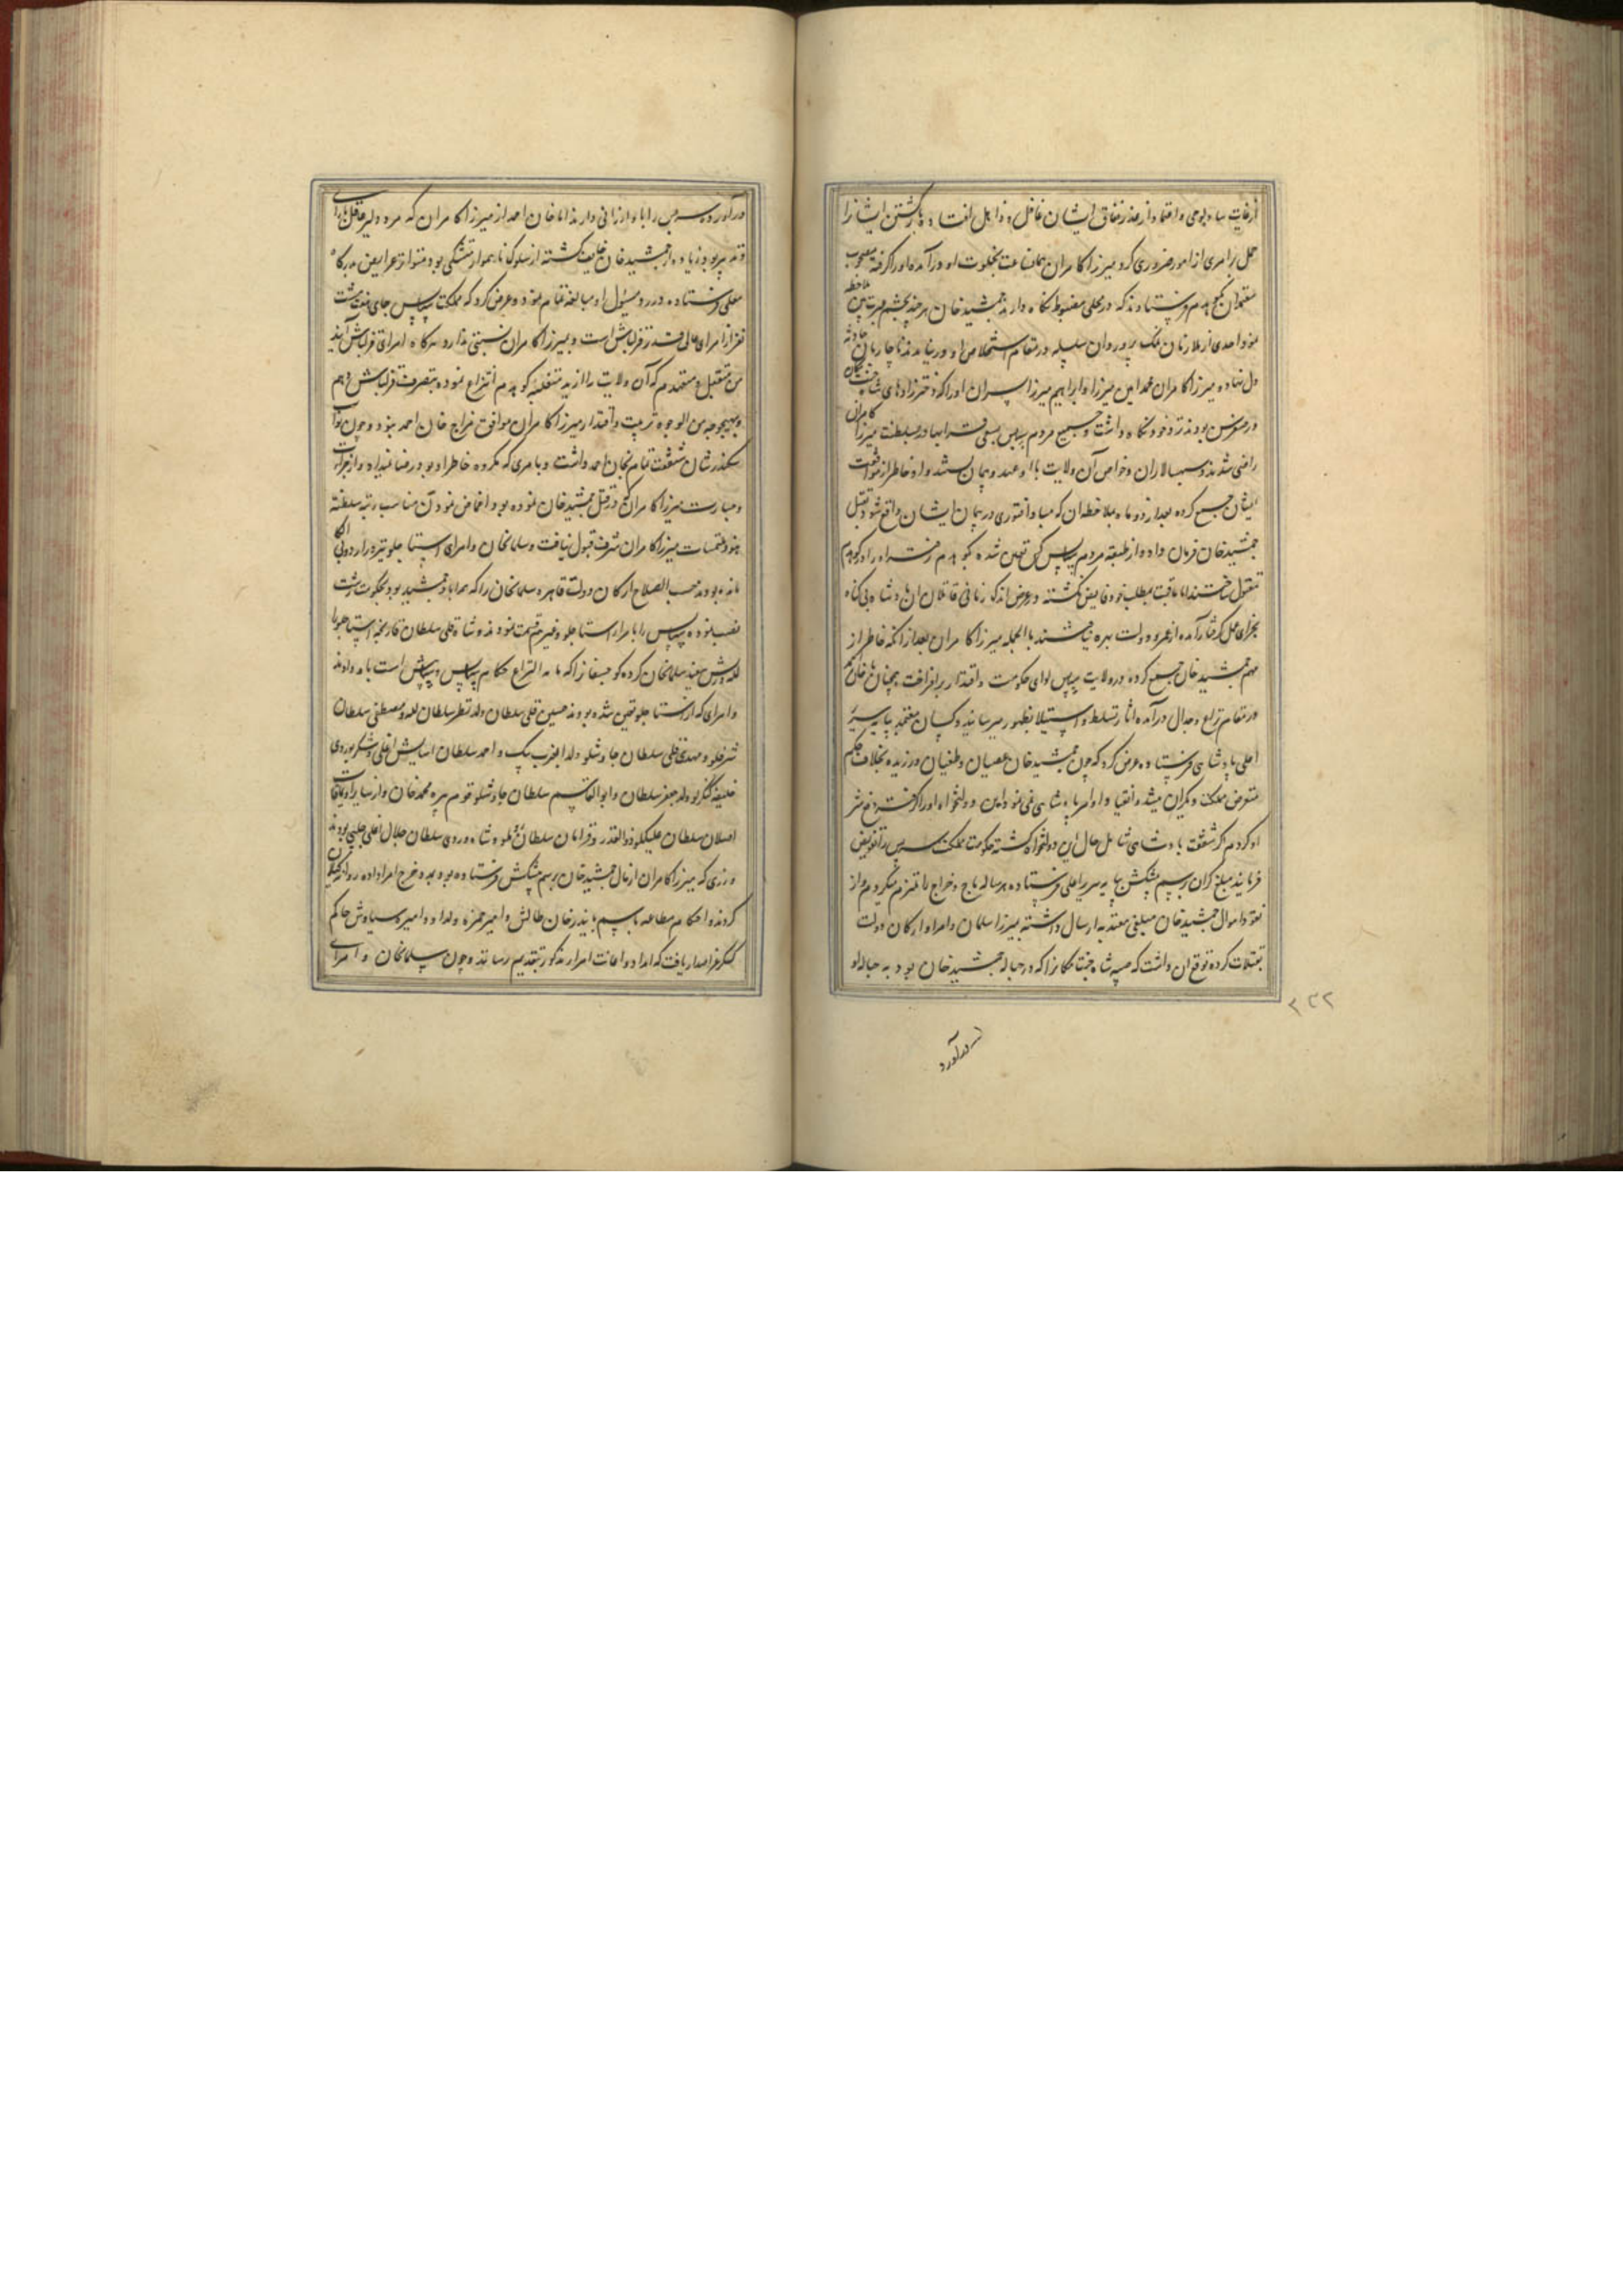 جمل بر امری از امور ضروری کرد میرزا کامران بخلوت او درآمده او را گرفته مصحوب
معتمدان بکوهدم فرستادند که در محلی مضبوط نگاه دارند جمشید خان هر چند بچشم عبرت بین ملاحظه
نمود احدی از ملازمان نمک پرورده آن سلسله در مقام استخلاص او در نیامدند ناچار بآن حادثه
دل نهاده میرزا کامران محمد امین میرزا و ابراهیم میرزا پسران او را که دخترزادهای شاه جنت مکان
بودند نزد خود نگاه داشت و جمیع مردم بیه پس بسلطنت میرزا کامران
راضی شدند و سپهسالاران و خواص آن ولایت با او عهد و پیمان بستند و او خاطر از
ایشان جمع کرده بعد از دو ماه بملاحظه آن که مبادا فتوری در پیمان ایشان واقع شود بقتل
جمشید خان فرمان داده از طبقه مردم بیه پس کس تعیین شده بکوهدم رفتند او را در کوهدم
مقتول ساختند اما عاقبت بمطلب خود فایض نگشته در عرض اندک زمانی قاتلان آن پادشاه بی گناه
بجزای عمل گرفتار آمده از عمر و دولت بهره نیافتند بالجمله میرزا کامران بعد از آنکه خاطر از
مهم جمشید خان جمع کرده در ولایت بیه پس لوای حکومت و اقتدار برافراخت
در مقام نزاع و جدال درآمده آثار تسلط و استیلا بظهور میرسانید و کسان معتمد بپایه سریر
اعلی پادشاهی فرستاده عرض کرد که چون جمشید خان عصیان و طغیان ورزیده بخلاف حکم
متعرض مملکت دیگران میشد و انقیاد اوامر پادشاهی نمی نمود این دولتخواه او را گرفته دفع شر
او کردم اگر شفقت پادشاهی شامل حال این دولتخواه گشته حکومت مملکت بیه پس را تفویض
فرمایند مبلغ گران برسم پیشکش بپایه سریر اعلی فرستاده هر ساله باج و خراج را ملتزم میگردم و از
نقود و اموال جمشید خان مبلغی معتد به ارسال داشته بمیرزا سلمان و امرا و ارکان دولت
تقبلات کرده توقع آن داشت که صبیه شاه جنت مکان را که در حباله جمشید خان بود به حباله او
درآورد
۳۳۲
درآورده بیه پس را باو ارزانی دارند اما خان احمد از میرزا کامران که مرد دلیر عاقل
و تدبیر بود زیاده از جمشید خان خایف گشته از سلوک ناهموار متشکی بود متواتر عرایض بدرگاه
معلی فرستاده در رد مسئول او مبالغه تمام نمود و عرض کرد که مملکت بیه پس جای هفت هشت
نفر از امرای عالی قدر قزلباش است و بمیرزا کامران نسبتی ندارد هرگاه امرای قزلباش آیند
من متقبل و متعهدم که آن ولایت را از ید متغلبه کوهدم انتزاع نموده بتصرف قزلباش دهم
و بهیچوجه من الوجوه تربیت و اقتدار میرزا کامران موافق مزاج خان احمد نبود و چون نواب
سکندر شان شفقت تمام بخان احمد داشت و بامری که مکروه خاطر او بود رضا نمیداد و از جرات
و جسارت میرزا کامران که در قتل جمشید خان نموده بود اغماض نمودن مناسب رتبه سلطنت
نبود ملتمسات میرزا کامران شرف قبول نیافت و سلمان خان و امرای استاجلو
مانده بودند حسب الصلاح ارکان دولت قاهره سلمان خان را که همراه جمشید بود بحکومت رشت
نصب نموده بیه پس را بامراء استاجلو و غیرهم قسمت نمودند و شاه قلی سلطان
له و ریش سفید سلمان خان کرده کوچسفان را که مابه النزاع حکام بیه پس و بیه پیش است باو دادند
و امرای که از استاجلو تعیین شده بودند حسین قلی سلطان ولد نظر سلطان لله و مصطفی سلطان
شرفلو و مهدیقلی سلطان چاوشلو ولد ایغرت بیک و احمد سلطان آسایش اغلی
خلیفه کنگرلو ولد جعفر سلطان و ابوالقاسم سلطان چاوشلو قوم پیره محمد خان و از سایر اویماقات
اصلان سلطان علیکلو ذوالقدر و قرامان سلطان روملو و شاهویردی سلطان جلال اغلی چلبی بودند
و زری که میرزا کامران از مال جمشید خان برسم پیشکش فرستاده بود بمدد خرج امرا داده روانه گیلان
کردند و احکام مطاعه باسم بایندر خان طالش و امیر حمزه ولد او و امیره سیاوش حاکم
کسکر عز اصدار یافت که امداد و اعانت امراء مذکور بتقدیم رسانند و چون سلمان خان و امرای